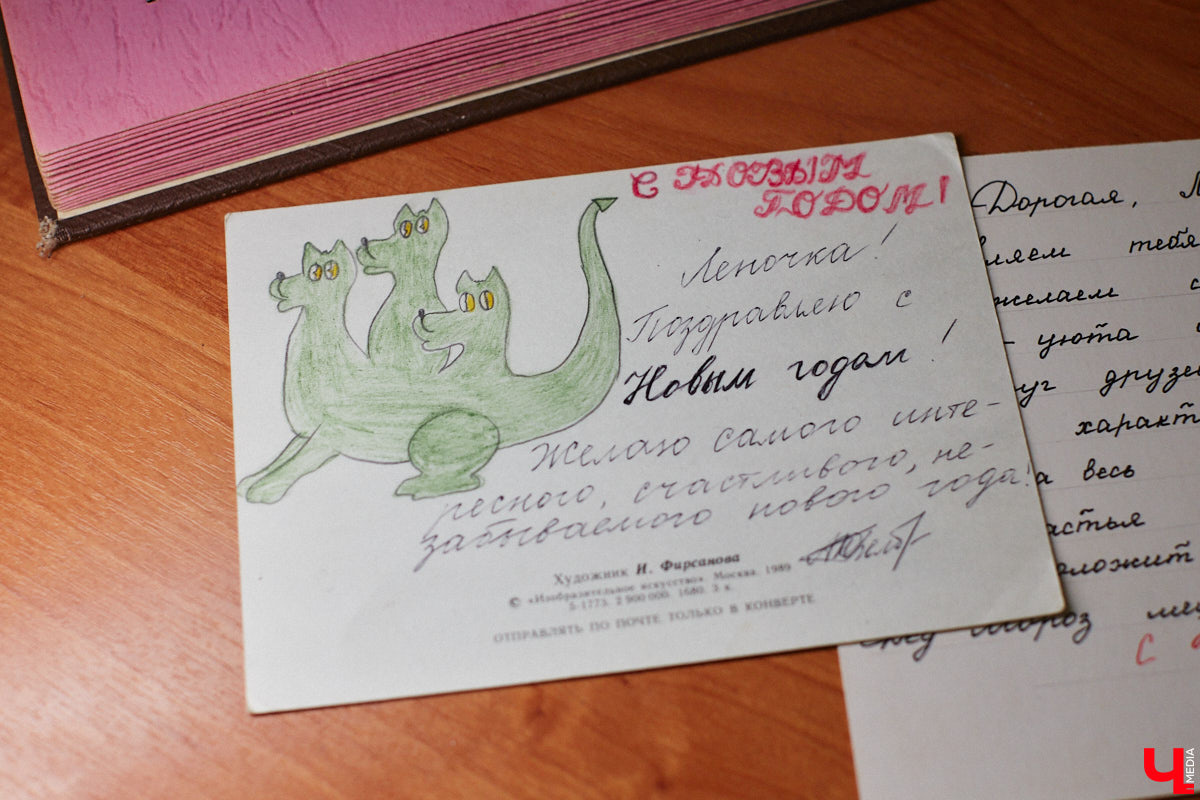 С НОВЫМ
ГОДОМ!
Леночка!
Поздравляю с
Новым годом!
Желаю самого инте-
ресного, счастливого, не-
забываемого нового года!
Художник И. Фирсанова
© «Изобразительное искусство». Москва. 1989
5-1773. 2 900 000. 1680. 3 к.
ОТПРАВЛЯТЬ ПО ПОЧТЕ ТОЛЬКО В КОНВЕРТЕ
Дорогая,
ляем тебя
желаем с
уюта
уг друзей
характ
а весь
астья
оложит
Мороз
С
Ч MEDIA